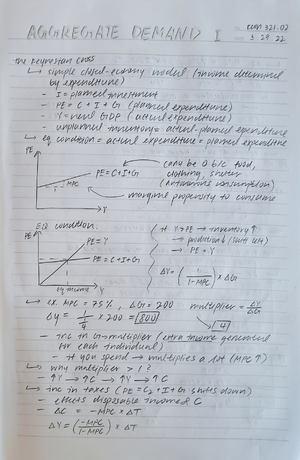 AGGREGATE DEMAND I
econ 321.02
3.29.22
The Keynesian Cross
↳ simple closed-economy model (income determined
by expenditure)
- I = planned investment
- PE = C + I + G (planned expenditure)
- Y = real GDP (actual expenditure)
- unplanned inventory = actual - planned expenditure
↳ eq condition = actual expenditure = planned expenditure
PE
PE = C + I + G
MPC
Y
can't be 0 b/c food,
clothing, shelter
(autonomous consumption)
marginal propensity to consume
EQ condition:
PE
PE = Y
PE = C + I + G
eq income
Y
if Y > PE → inventory ↑
→ production ↓ (shift left)
→ PE = Y
ΔY = (1/1-MPC) × ΔG
↳ ex. MPC = 75%, ΔG = 200
multiplier = ΔY/ΔG
ΔY = 1/¼ × 200 = 800
4
- inc in G → multiplier (extra income generated
for each individual)
- if you spend → multiplies a lot (MPC ↑)
↳ Why multiplier > 1?
- ↑Y → ↑C → ↑Y → ↑C
↳ inc in taxes (PE = C₂ + I + G shifts down)
- effects disposable income & C
- ΔC = -MPC × ΔT
ΔY = (-MPC/1-MPC) × ΔT